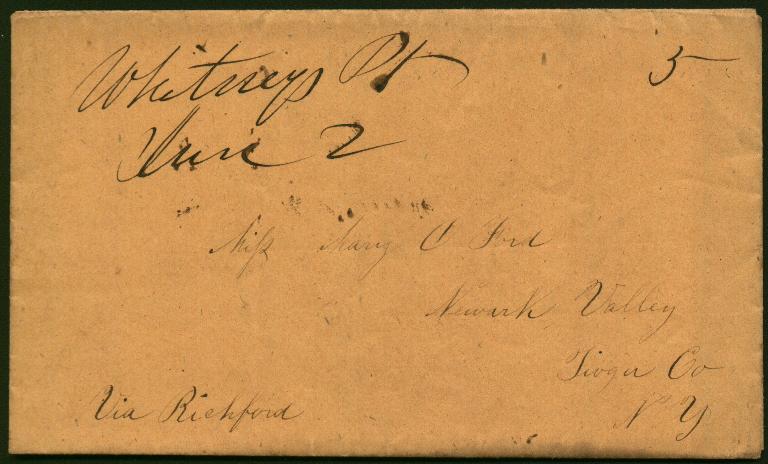 Whitneys Pt 5
June 2
Miss Mary O Ford
Newark Valley
Tioga Co
N Y
Via Richford